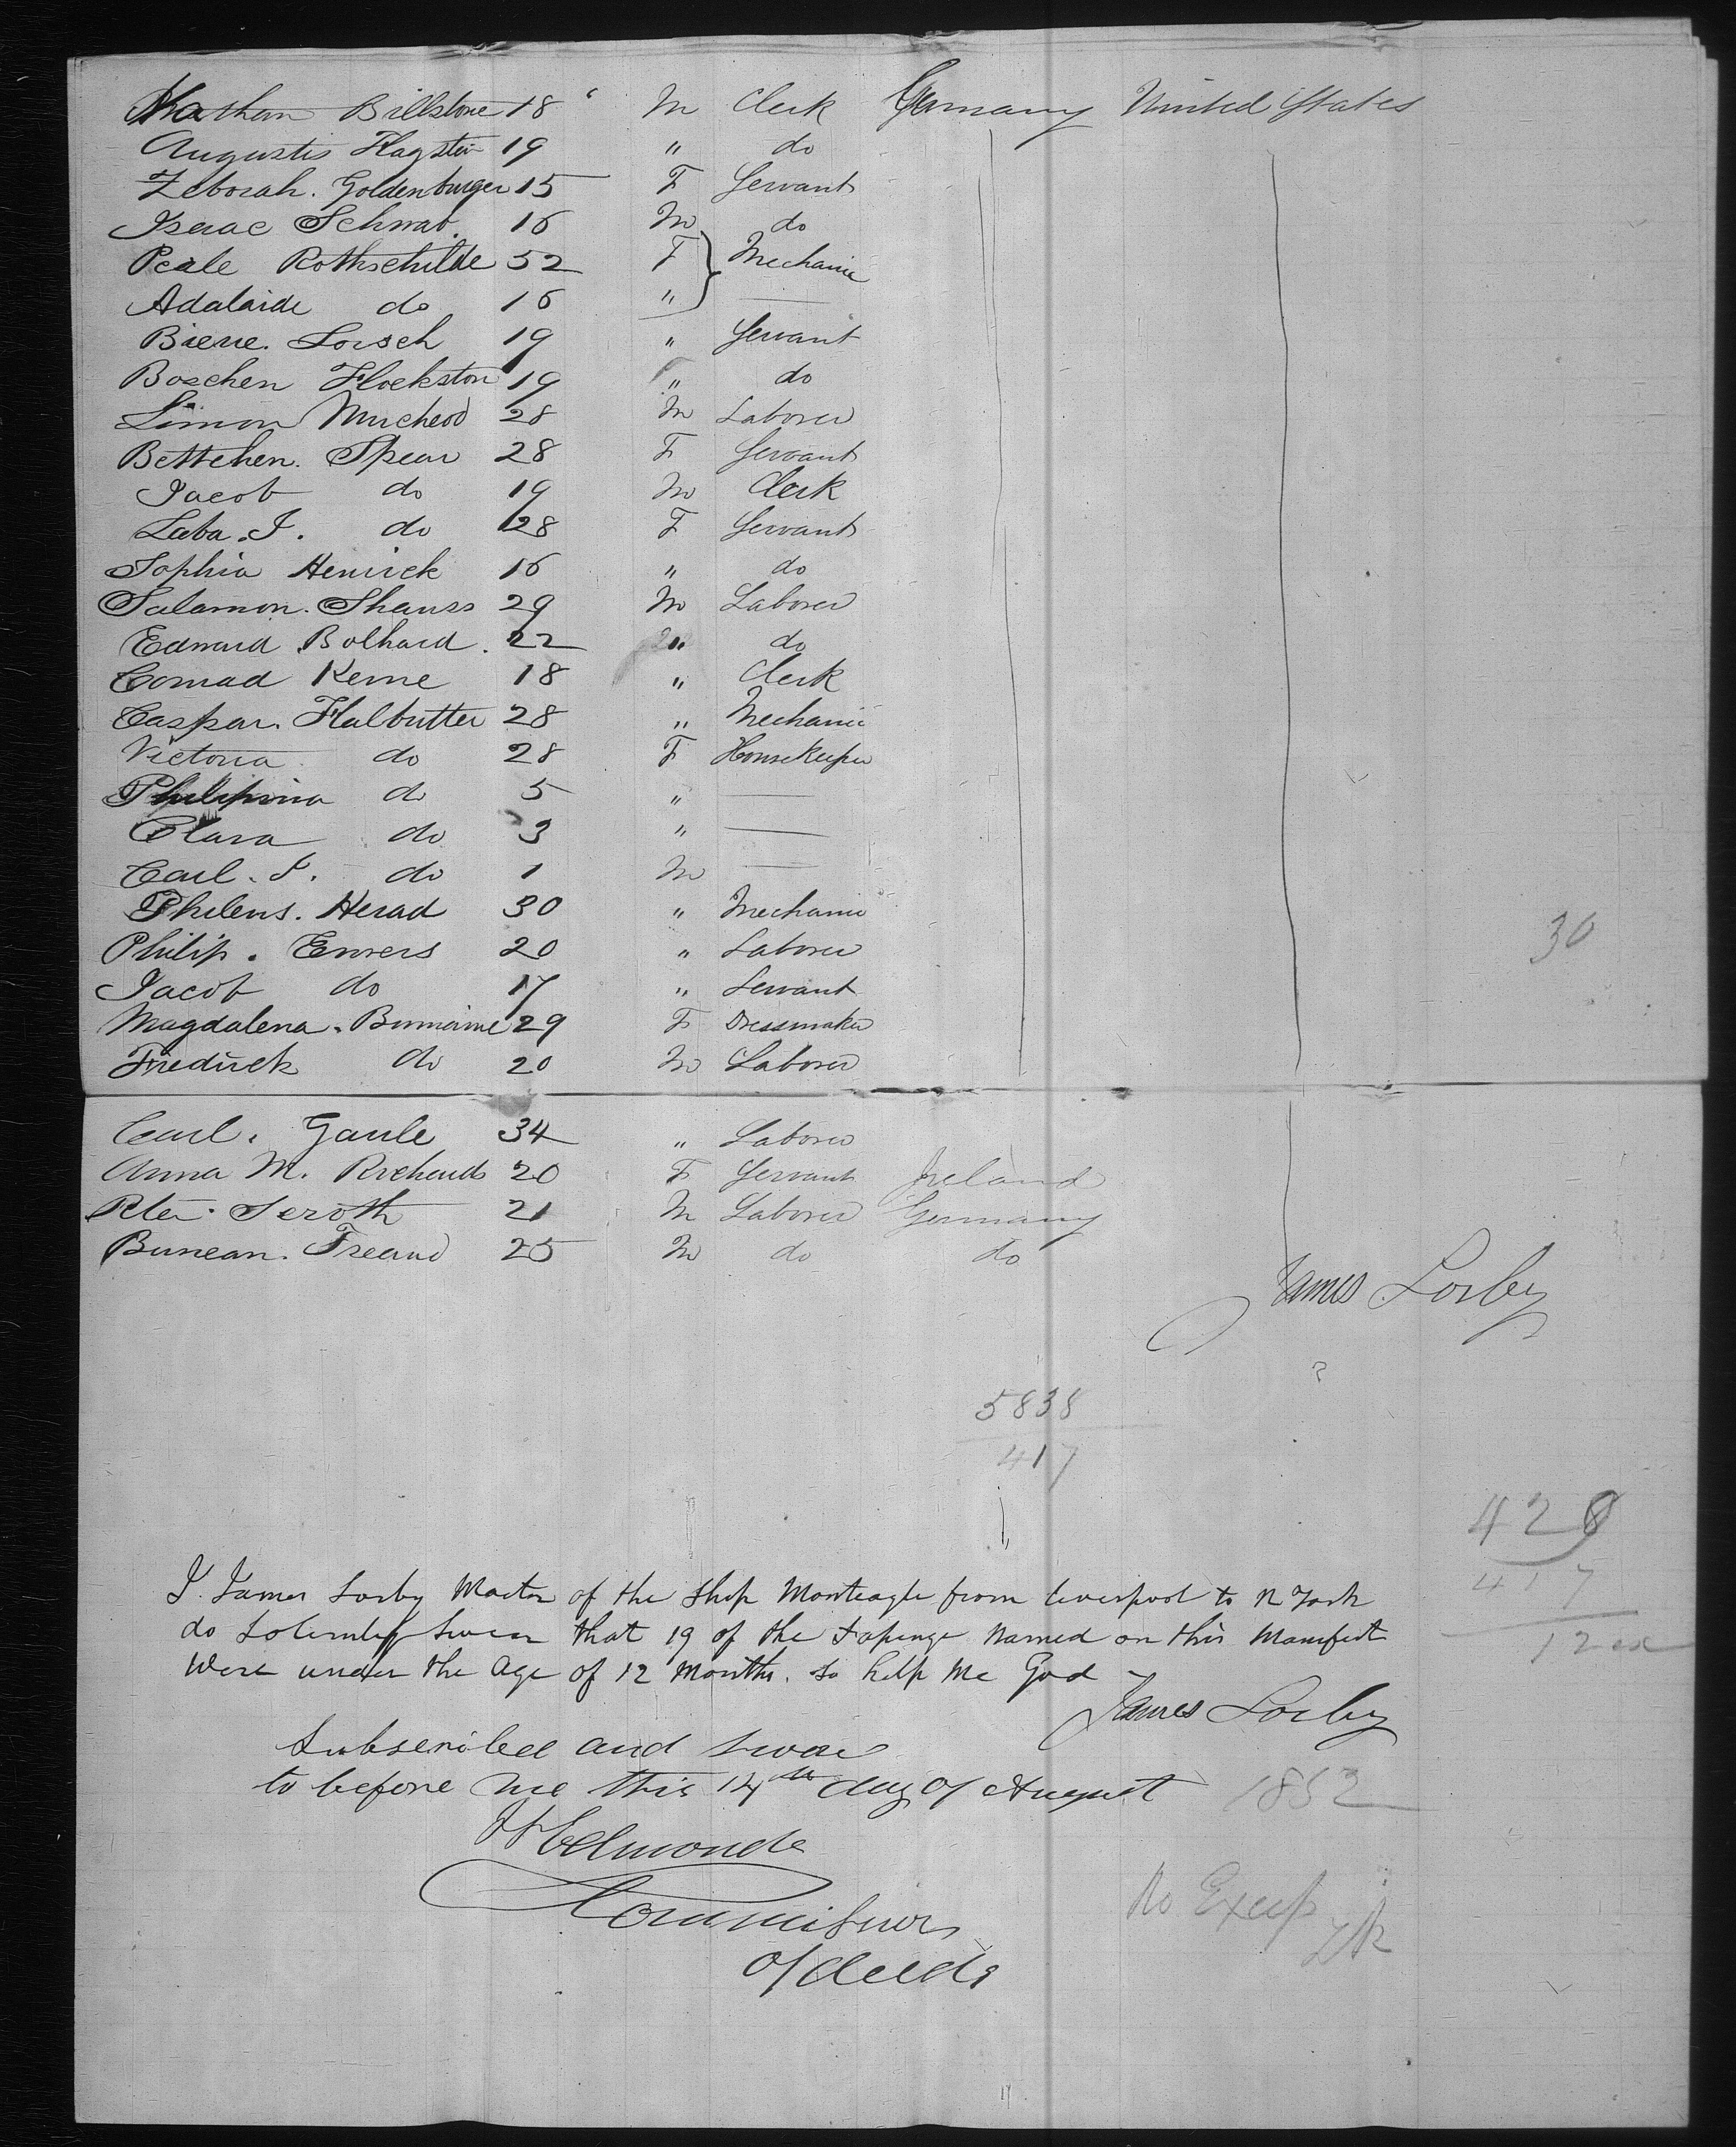 Nathan Billstone 18 M Clerk Germany United States
Augustis Hagstein 19 " do
Zeborah. Goldenburger 15 F Servant
Iserac Schwab. 16 M do
Peale Rothschilde 52 F Mechanic
Adalaide do 16 "
Biene. Lorsch 19 " Servant
Boschen Flockston 19 " do
Simon Mucheod 28 M Laborer
Bettchen. Spear 28 F Servant
Jacob do 19 M Clerk
Laba. I. do 28 F Servant
Sophia Henrick 16 " do
Salamon. Shauss 29 M Laborer
Edward Bolhard. 22 " do
Conrad Kerne 18 " Clerk
Caspar. Halbutter 28 " Mechanic
Victoria do 28 F Housekeeper
Philipina do 5 "
Clara do 3 "
Carl. J. do 1 M
Philens. Herad 30 " Mechanic
30
Philip. Emers 20 " Laborer
Jacob do 17 " Servant
Magdalena. Bumaine 29 F Dressmaker
Fredrick do 20 M Laborer
Carl. Gaule 34 " Laborer
Anna M. Richards 20 F Servant Ireland
Peter. Seroth 21 M Laborer Germany
Bunean. Freand 25 M do do
James Lorby
5838
417
428
417
12
I. James Lorby Master of the Ship Monteagle from Liverpool to N York
do Solemnly Swear that 19 of the Named on this Manifest
Were under the Age of 12 Months. So help Me God
James Lorby
Subscribed and Sworn
to before me this 14th day of August 1852
Edmonds
Commissioner
of deeds
No Excep